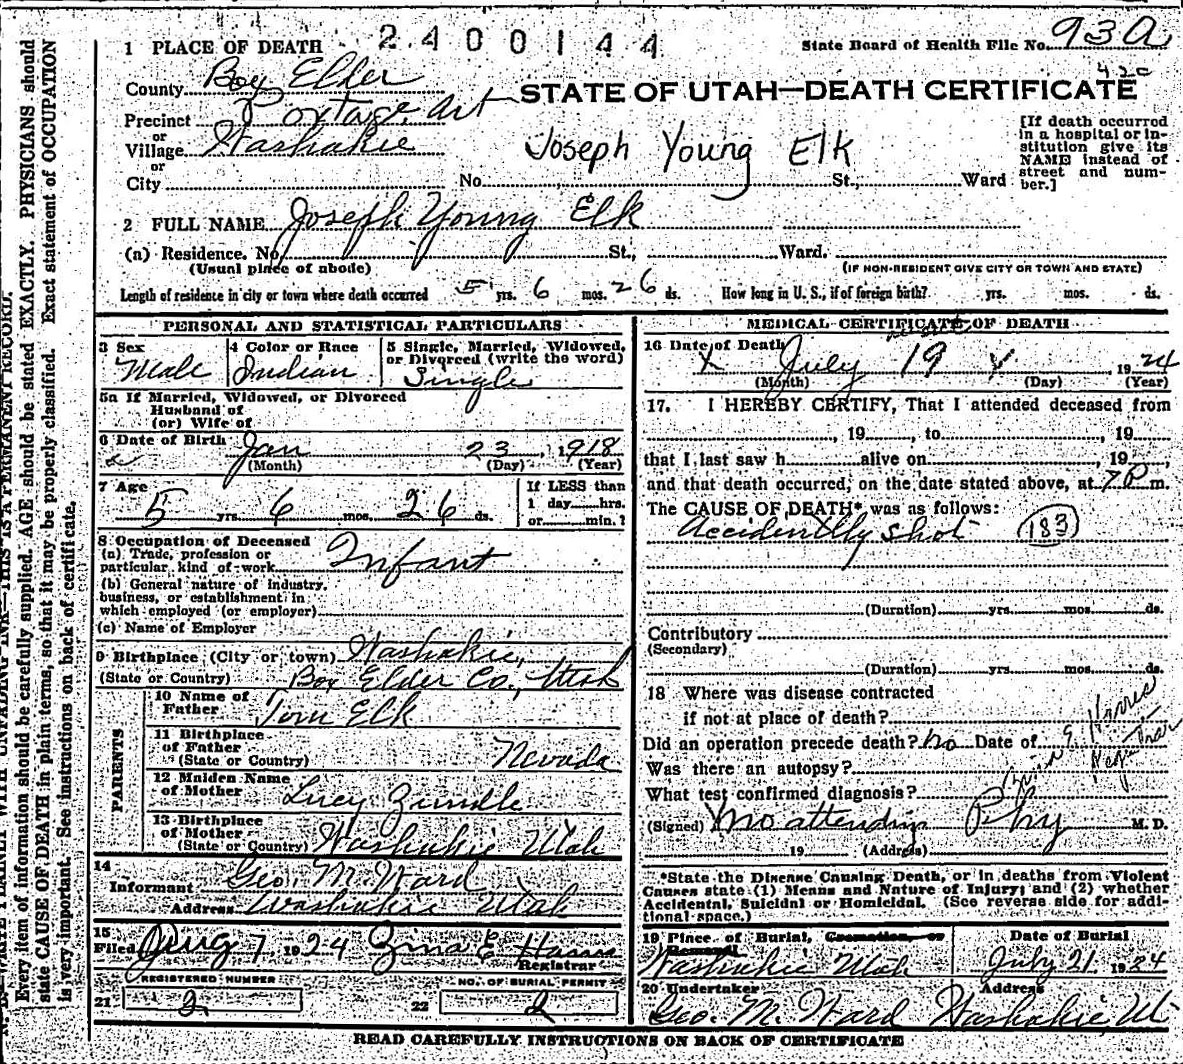 2400144
State Board of Health File No. 93a
420
1 PLACE OF DEATH
County Box Elder
STATE OF UTAH—DEATH CERTIFICATE
Precinct Portage
or
Village Washakie
or
City No. St., Ward
Joseph Young Elk
[If death occurred
in a hospital or in-
stitution give its
NAME instead of
street and num-
ber.]
2 FULL NAME Joseph Young Elk
(a) Residence. No. St., Ward.
(Usual place of abode)
(IF NON-RESIDENT GIVE CITY OR TOWN AND STATE)
Length of residence in city or town where death occurred 5 yrs. 6 mos. 26 ds. How long in U. S., if of foreign birth? yrs. mos. ds.
PERSONAL AND STATISTICAL PARTICULARS
3 Sex
Male
4 Color or Race
Indian
5 Single, Married, Widowed,
or Divorced (write the word)
Single
5a If Married, Widowed, or Divorced
Husband of
(or) Wife of
6 Date of Birth
Jan 23, 1918
(Month) (Day) (Year)
7 Age
5 yrs. 6 mos. 26 ds.
If LESS than
1 day hrs.
or min.?
8 Occupation of Deceased
(a) Trade, profession or
particular kind of work Infant
(b) General nature of industry,
business, or establishment in
which employed (or employer)
(c) Name of Employer
9 Birthplace (City or town) Washakie,
(State or Country) Box Elder Co., Utah
PARENTS
10 Name of
Father Tom Elk
11 Birthplace
of Father
(State or Country) Nevada
12 Maiden Name
of Mother Lucy Zundle
13 Birthplace
of Mother
(State or Country) Washakie Utah
14
Informant Geo. M. Ward
Address Washakie Utah
15
Filed Aug 7, 1924 Zina E Harris
Registrar
REGISTERED NUMBER
21 2
NO. OF BURIAL PERMIT
22 2
MEDICAL CERTIFICATE OF DEATH
16 Date of Death
X July 19 X, 1924
(Month) (Day) (Year)
17. I HEREBY CERTIFY, That I attended deceased from
, 19 , to , 19
that I last saw h alive on , 19 ,
and that death occurred, on the date stated above, at 7 P m.
The CAUSE OF DEATH* was as follows:
Accidentlly shot 183
(Duration) yrs. mos. ds.
Contributory
(Secondary)
(Duration) yrs. mos. ds.
18 Where was disease contracted
if not at place of death?
Did an operation precede death? no Date of
Was there an autopsy?
What test confirmed diagnosis?
Zina E. Harris
Registrar
(Signed) No attending Phy M. D.
19 (Address)
*State the Disease Causing Death, or in deaths from Violent
Causes state (1) Means and Nature of Injury; and (2) whether
Accidental, Suicidal or Homicidal. (See reverse side for addi-
tional space.)
19 Place of Burial, Cremation, or
Removal
Washakie Utah
Date of Burial
July 21, 1924
20 Undertaker
Geo. M. Ward
Address
Washakie, Ut
READ CAREFULLY INSTRUCTIONS ON BACK OF CERTIFICATE
N. B.—WRITE PLAINLY WITH UNFADING INK—THIS IS A PERMANENT RECORD.
Every item of information should be carefully supplied. AGE should be stated EXACTLY. PHYSICIANS should
state CAUSE OF DEATH in plain terms, so that it may be properly classified. Exact statement of OCCUPATION
is very important. See instructions on back of certificate.